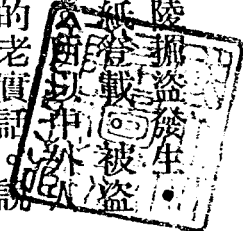 陵掘盜發生
紙登載被盜
中外人
的老實話。說